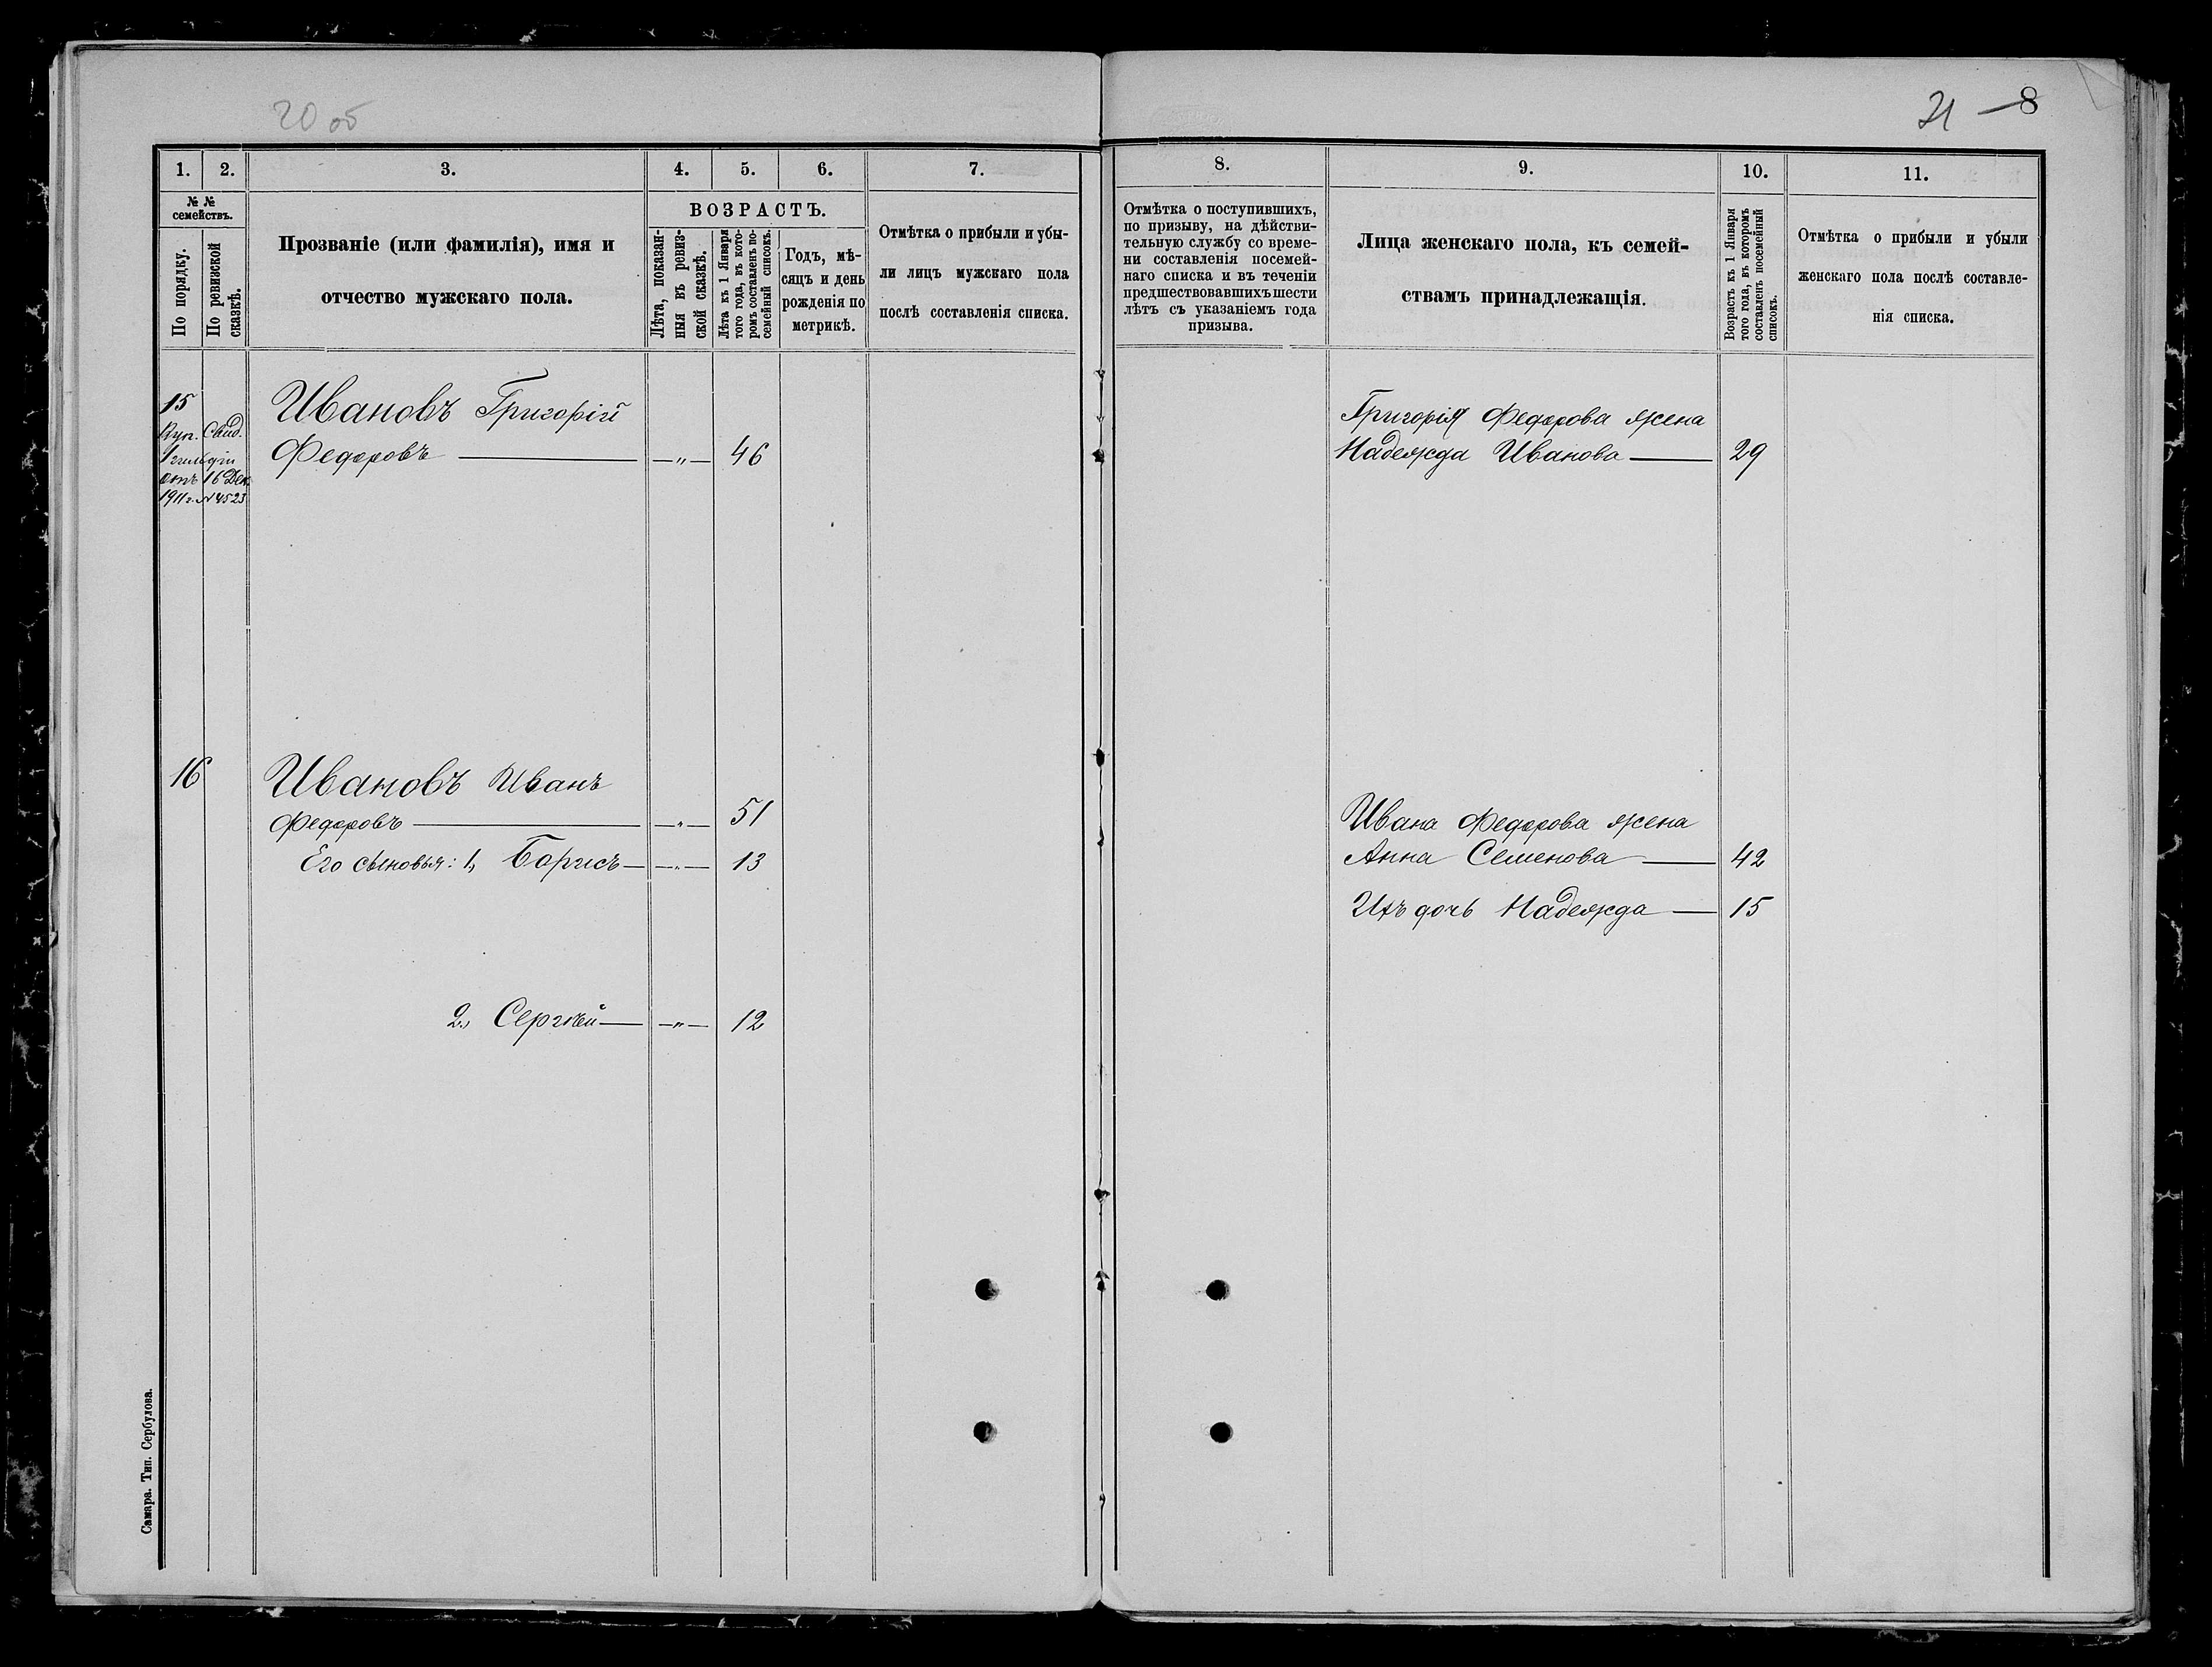 20 об
1. 2. 3. 4. 5. 6. 7.
№ №
семействъ.
По порядку.
По ревизской
сказкѣ.
Прозваніе (или фамилія), имя и
отчество мужскаго пола.
ВОЗРАСТЪ.
Лѣта, показан-
ныя въ ревиз-
ской сказкѣ.
Лѣта къ 1 Января
того года, въ кото-
ромъ составленъ по-
семейный списокъ.
Годъ, мѣ-
сяцъ и день
рожденія по
метрикѣ.
Отмѣтка о прибыли и убы-
ли лицъ мужскаго пола
послѣ составленія списка.
15
Куп. Свид.
1 гильдіи
отъ 16 Дек.
1911 г. № 4523
Ивановъ Григорій
Федоровъ — „ — 46
16
Ивановъ Иванъ
Федоровъ — „ — 51
Его сыновья: 1, Борисъ — „ — 13
2, Сергѣй — „ — 12
Самара. Тип. Сербулова.
21 8
8. 9. 10. 11.
Отмѣтка о поступившихъ,
по призыву, на дѣйстви-
тельную службу со време-
ни составленія посемей-
наго списка и въ теченіи
предшествовавшихъ шести
лѣтъ съ указаніемъ года
призыва.
Лица женскаго пола, къ семей-
ствамъ принадлежащія.
Возрастъ къ 1 Января
того года, въ которомъ
составленъ посемейный
списокъ.
Отмѣтка о прибыли и убыли
женскаго пола послѣ составле-
нія списка.
Григорія Федорова жена
Надежда Иванова — 29
Ивана Федорова жена
Анна Семенова — 42
Ихъ дочь Надежда — 15